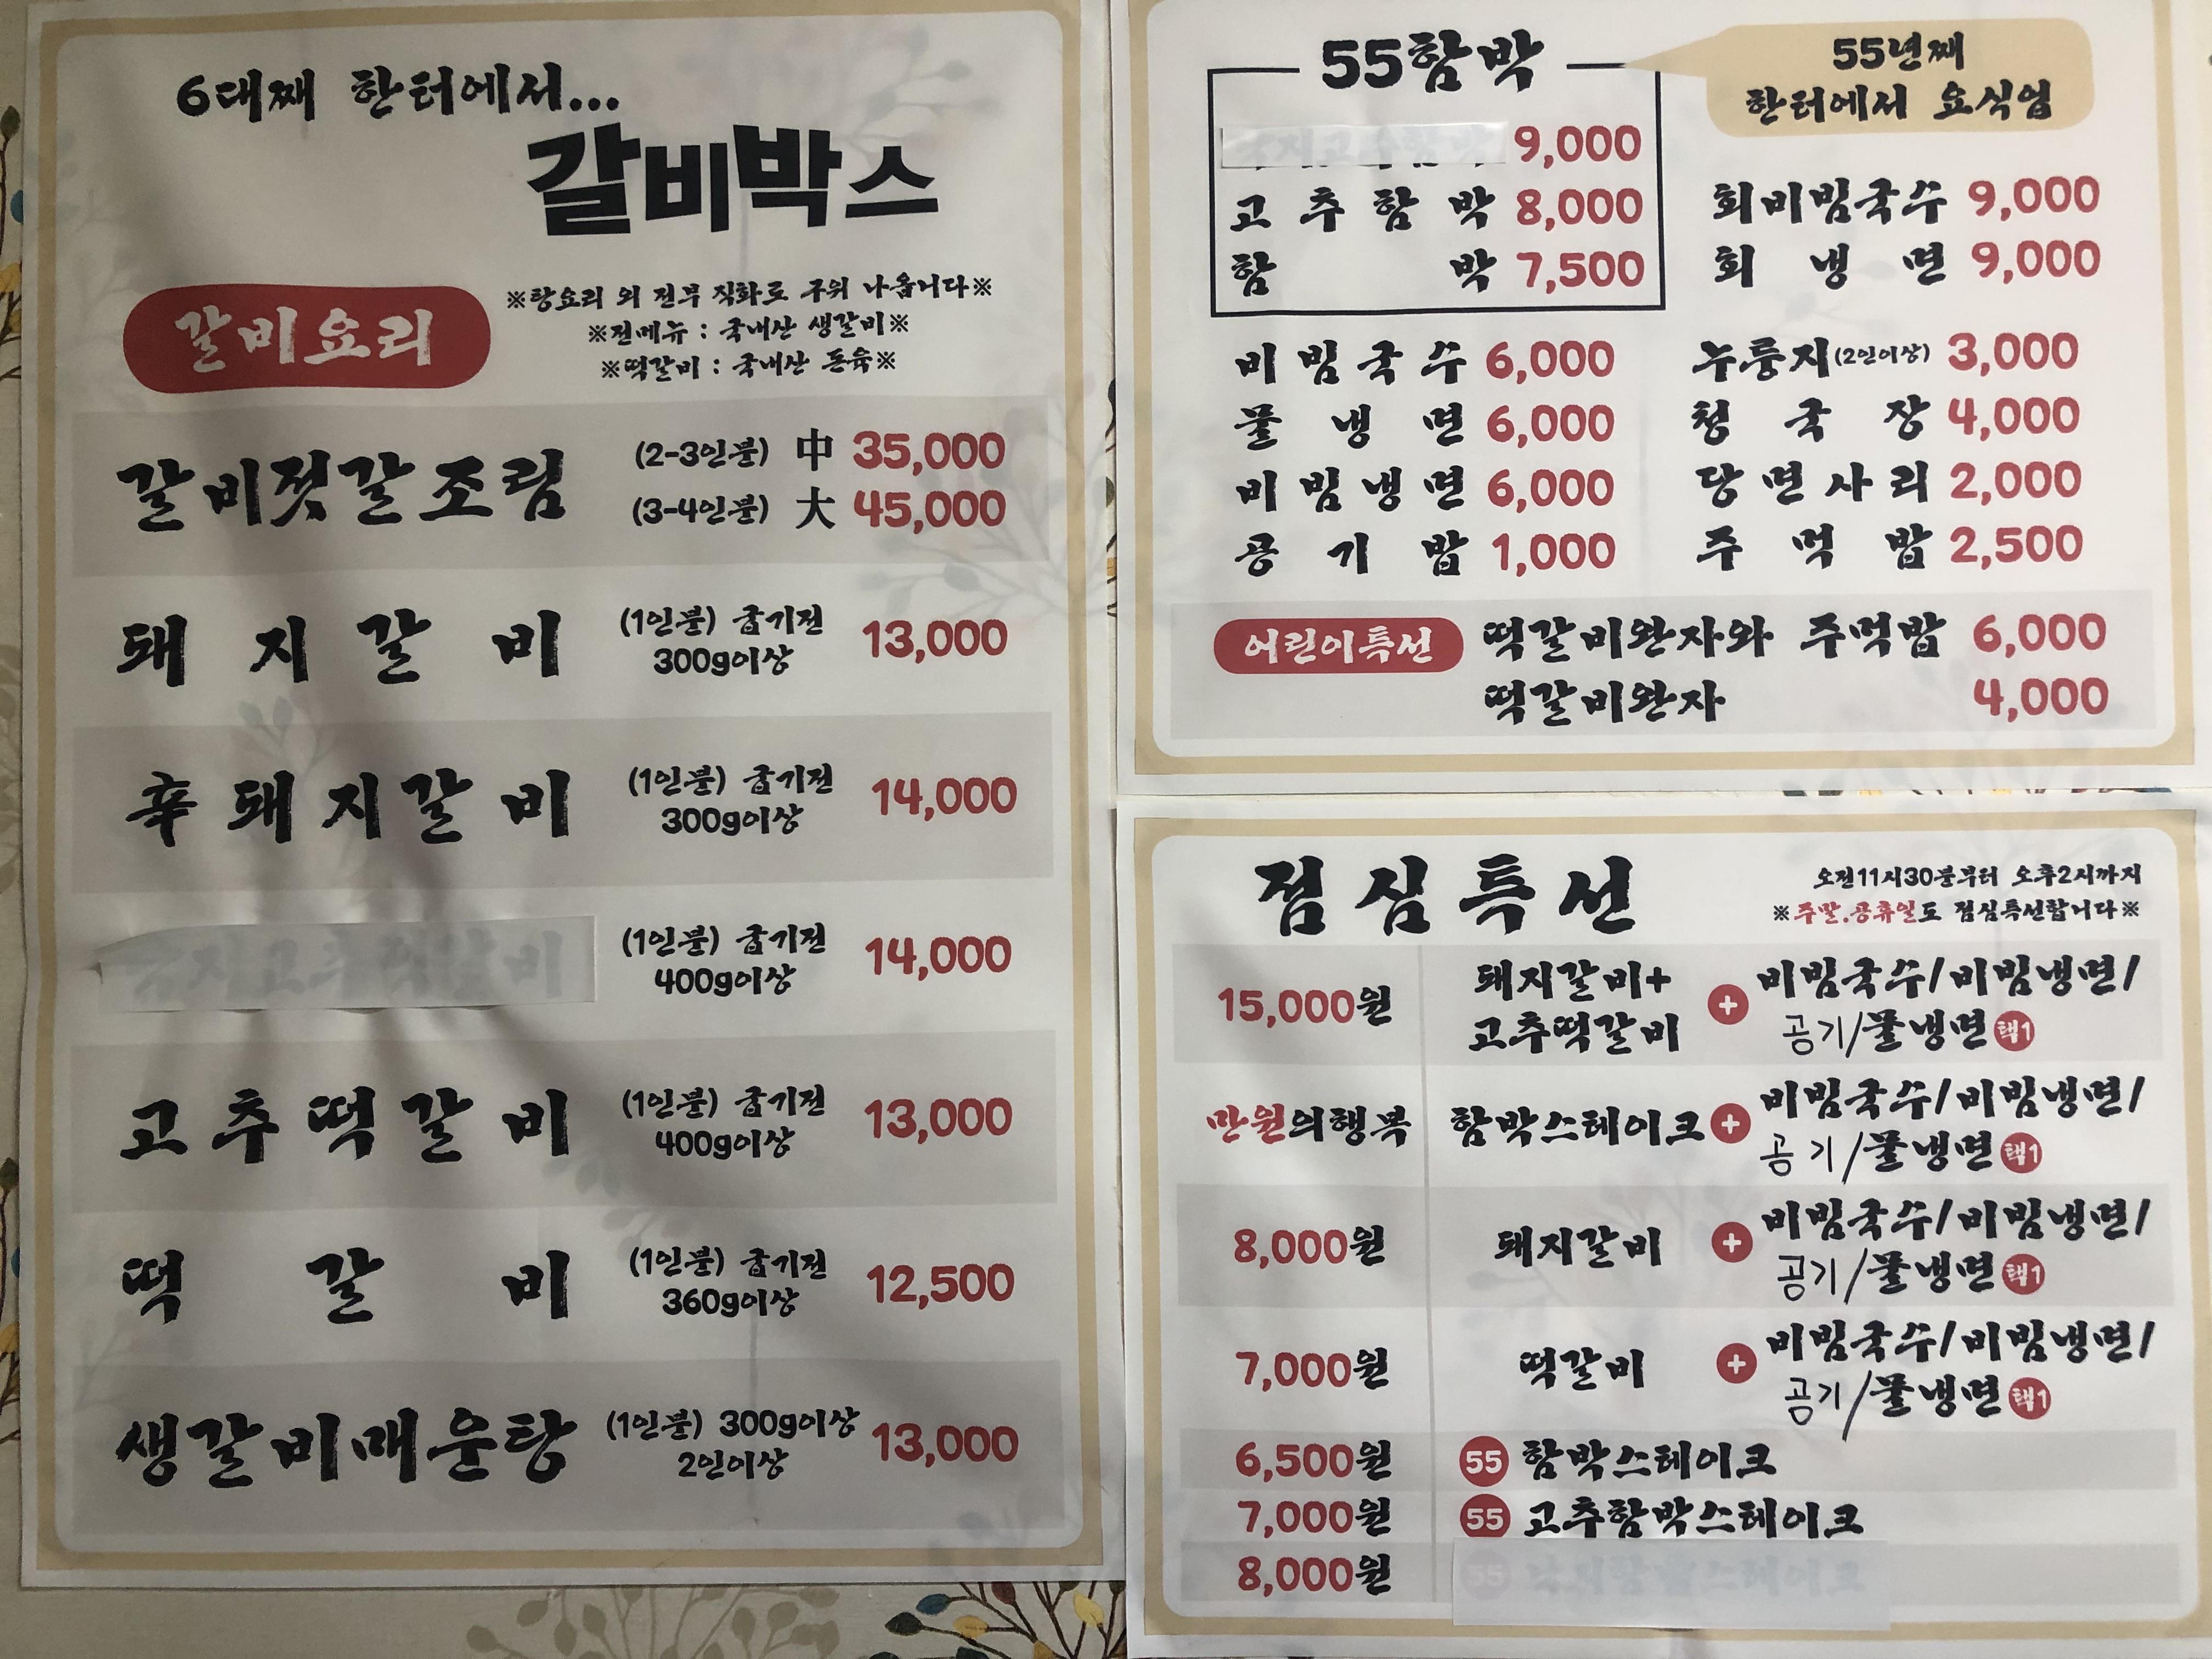 6대째 한터에서...
갈비박스
갈비요리
※탕요리 외 전부 직화로 구워 나옵니다※
※전메뉴 : 국내산 생갈비※
※떡갈비 : 국내산 돈육※
갈비젓갈조림 (2-3인분) 中 35,000
(3-4인분) 大 45,000
돼지갈비 (1인분) 굽기전 300g이상 13,000
辛돼지갈비 (1인분) 굽기전 300g이상 14,000
(1인분) 굽기전 400g이상 14,000
고추떡갈비 (1인분) 굽기전 400g이상 13,000
떡갈비 (1인분) 굽기전 360g이상 12,500
생갈비매운탕 (1인분) 300g이상 2인이상 13,000
55함박
55년째
한터에서 요식업
9,000
고추함박 8,000
함박 7,500
회비빔국수 9,000
회냉면 9,000
비빔국수 6,000
물냉면 6,000
비빔냉면 6,000
공기밥 1,000
누룽지(2인이상) 3,000
청국장 4,000
당면사리 2,000
주먹밥 2,500
어린이특선 떡갈비완자와 주먹밥 6,000
떡갈비완자 4,000
점심특선
오전11시30분부터 오후2시까지
※주말.공휴일도 점심특선합니다※
15,000원 돼지갈비+고추떡갈비 + 비빔국수/비빔냉면/
공기/물냉면 택1
만원의행복 함박스테이크 + 비빔국수/비빔냉면/
공기/물냉면 택1
8,000원 돼지갈비 + 비빔국수/비빔냉면/
공기/물냉면 택1
7,000원 떡갈비 + 비빔국수/비빔냉면/
공기/물냉면 택1
6,500원 55 함박스테이크
7,000원 55 고추함박스테이크
8,000원